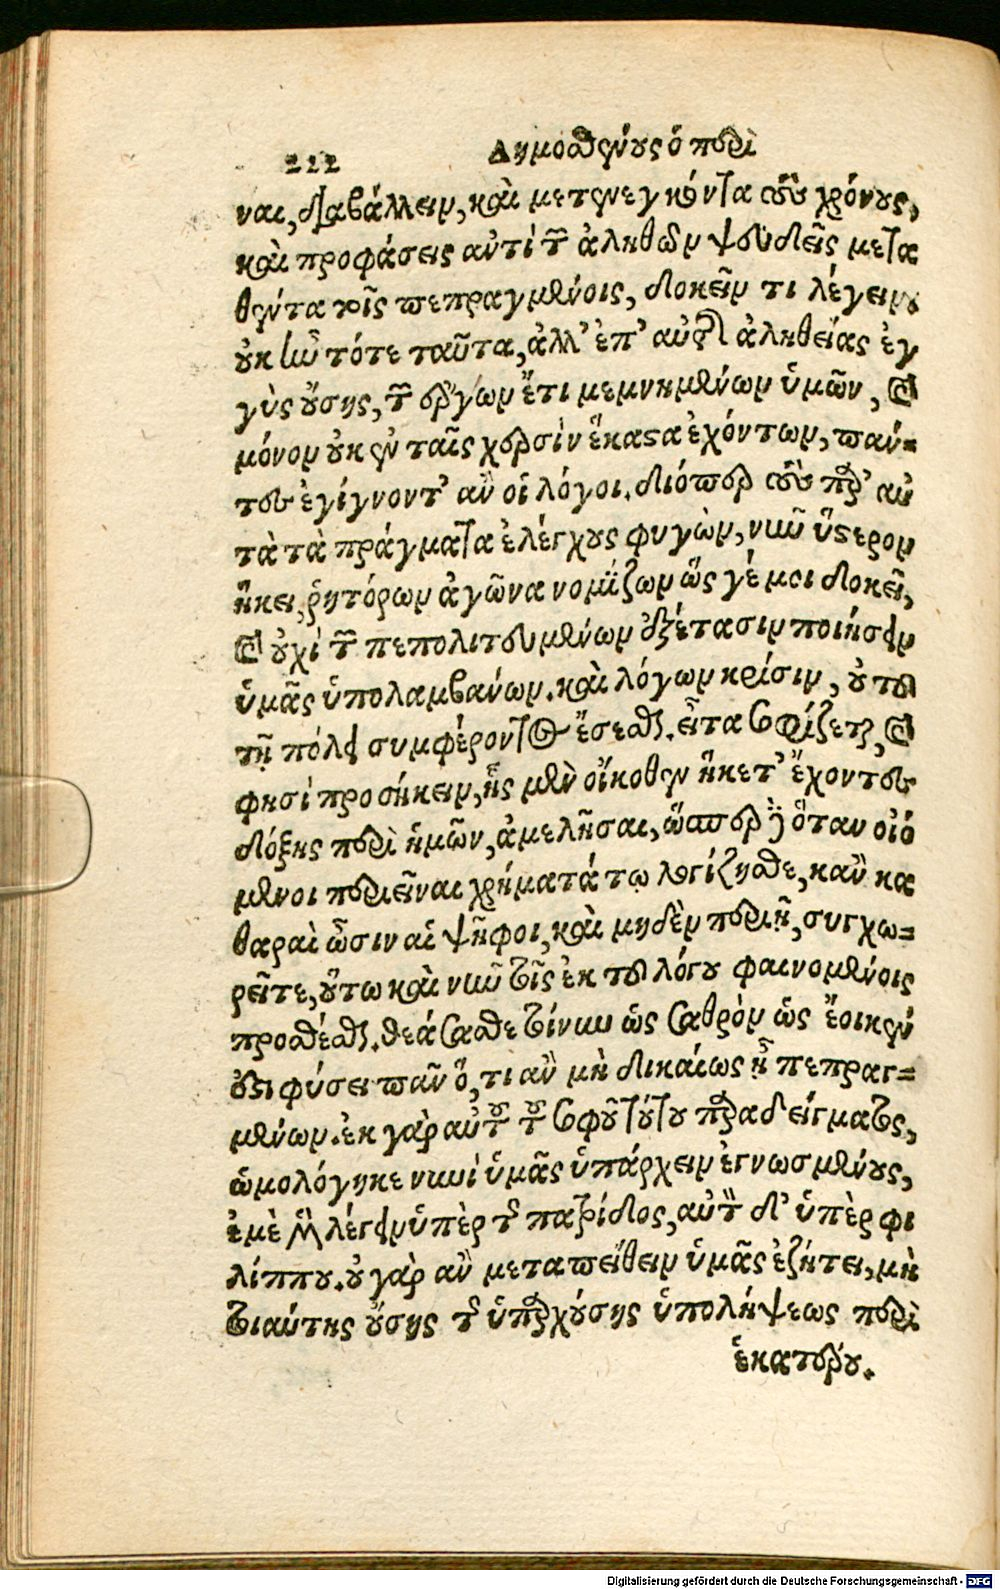 212 Δημοσθένους ὁ περὶ
ναι, διαβάλλειν, καὶ μετενεγκόντα τοὺς χρόνους,
καὶ προφάσεις αὐτὶ τῶν ἀληθῶν ψευδεῖς μετα
θέντα τοῖς πεπραγμένοις, δοκεῖν τι λέγειν.
οὐκ ἦν τότε ταῦτα, ἀλλ' ἐπ' αὐτῆς ἀληθείας ἐγ
γὺς οὔσης, τῶν ἔργων ἔτι μεμνημένων ὑμῶν, καὶ
μόνον οὐκ ἐν ταῖς χερσὶν ἕκαστα ἐχόντων, πάν-
τες ἐγίγνοντ' αὖ οἱ λόγοι. διόπερ τοὺς παρ' αὐ
τὰ τὰ πράγματα ἐλέγχους φυγὼν, νῦν ὕστερον
ἥκει, ῥητόρων ἀγῶνα νομίζων ὥς γέ μοι δοκεῖ,
καὶ οὐχὶ τῶν πεπολιτευμένων ἐξέτασιν ποιήσειν
ὑμᾶς ὑπολαμβάνων. καὶ λόγων κρίσιν, οὐ τοῦ
τῇ πόλει συμφέροντος ἔσεσθαι. εἶτα σοφίζεται, καὶ
φησὶ προσήκειν, ἧς μὲν οἴκοθεν ἥκετ' ἔχοντες
δόξης περὶ ἡμῶν, ἀμελῆσαι, ὥσπερ δ' ὅταν οἰό
μενοι περιεῖναι χρήματά τῳ λογίζησθε, καὶ κα
θαραὶ ὦσιν αἱ ψῆφοι, καὶ μηδὲν περιῇ, συγχω-
ρεῖτε, οὕτω καὶ νῦν τοῖς ἐκ τοῦ λόγου φαινομένοις
προσθέσθαι. θεάσασθε τοίνυν ὡς σαθρὸν ὡς ἔοικεν
ἐστι φύσει πᾶν ὅ, τι ἂν μὴ δικαίως ᾖ πεπραγ-
μένων. ἐκ γὰρ αὐτοῦ τοῦ σοφοῦ τούτου παραδείγματος,
ὡμολόγηκε νυνὶ ὑμᾶς ὑπάρχειν ἐγνωσμένους,
ἐμὲ μὲν λέγειν ὑπὲρ τῆς πατρίδος, αὐτὸν δ' ὑπὲρ φι
λίππου. οὐ γὰρ ἂν μεταπείθειν ὑμᾶς ἐζήτει, μὴ
τοιαύτης οὔσης τῆς ὑπαρχούσης ὑπολήψεως περὶ
ἑκατέρου.
Digitalisierung gefördert durch die Deutsche Forschungsgemeinschaft - DFG